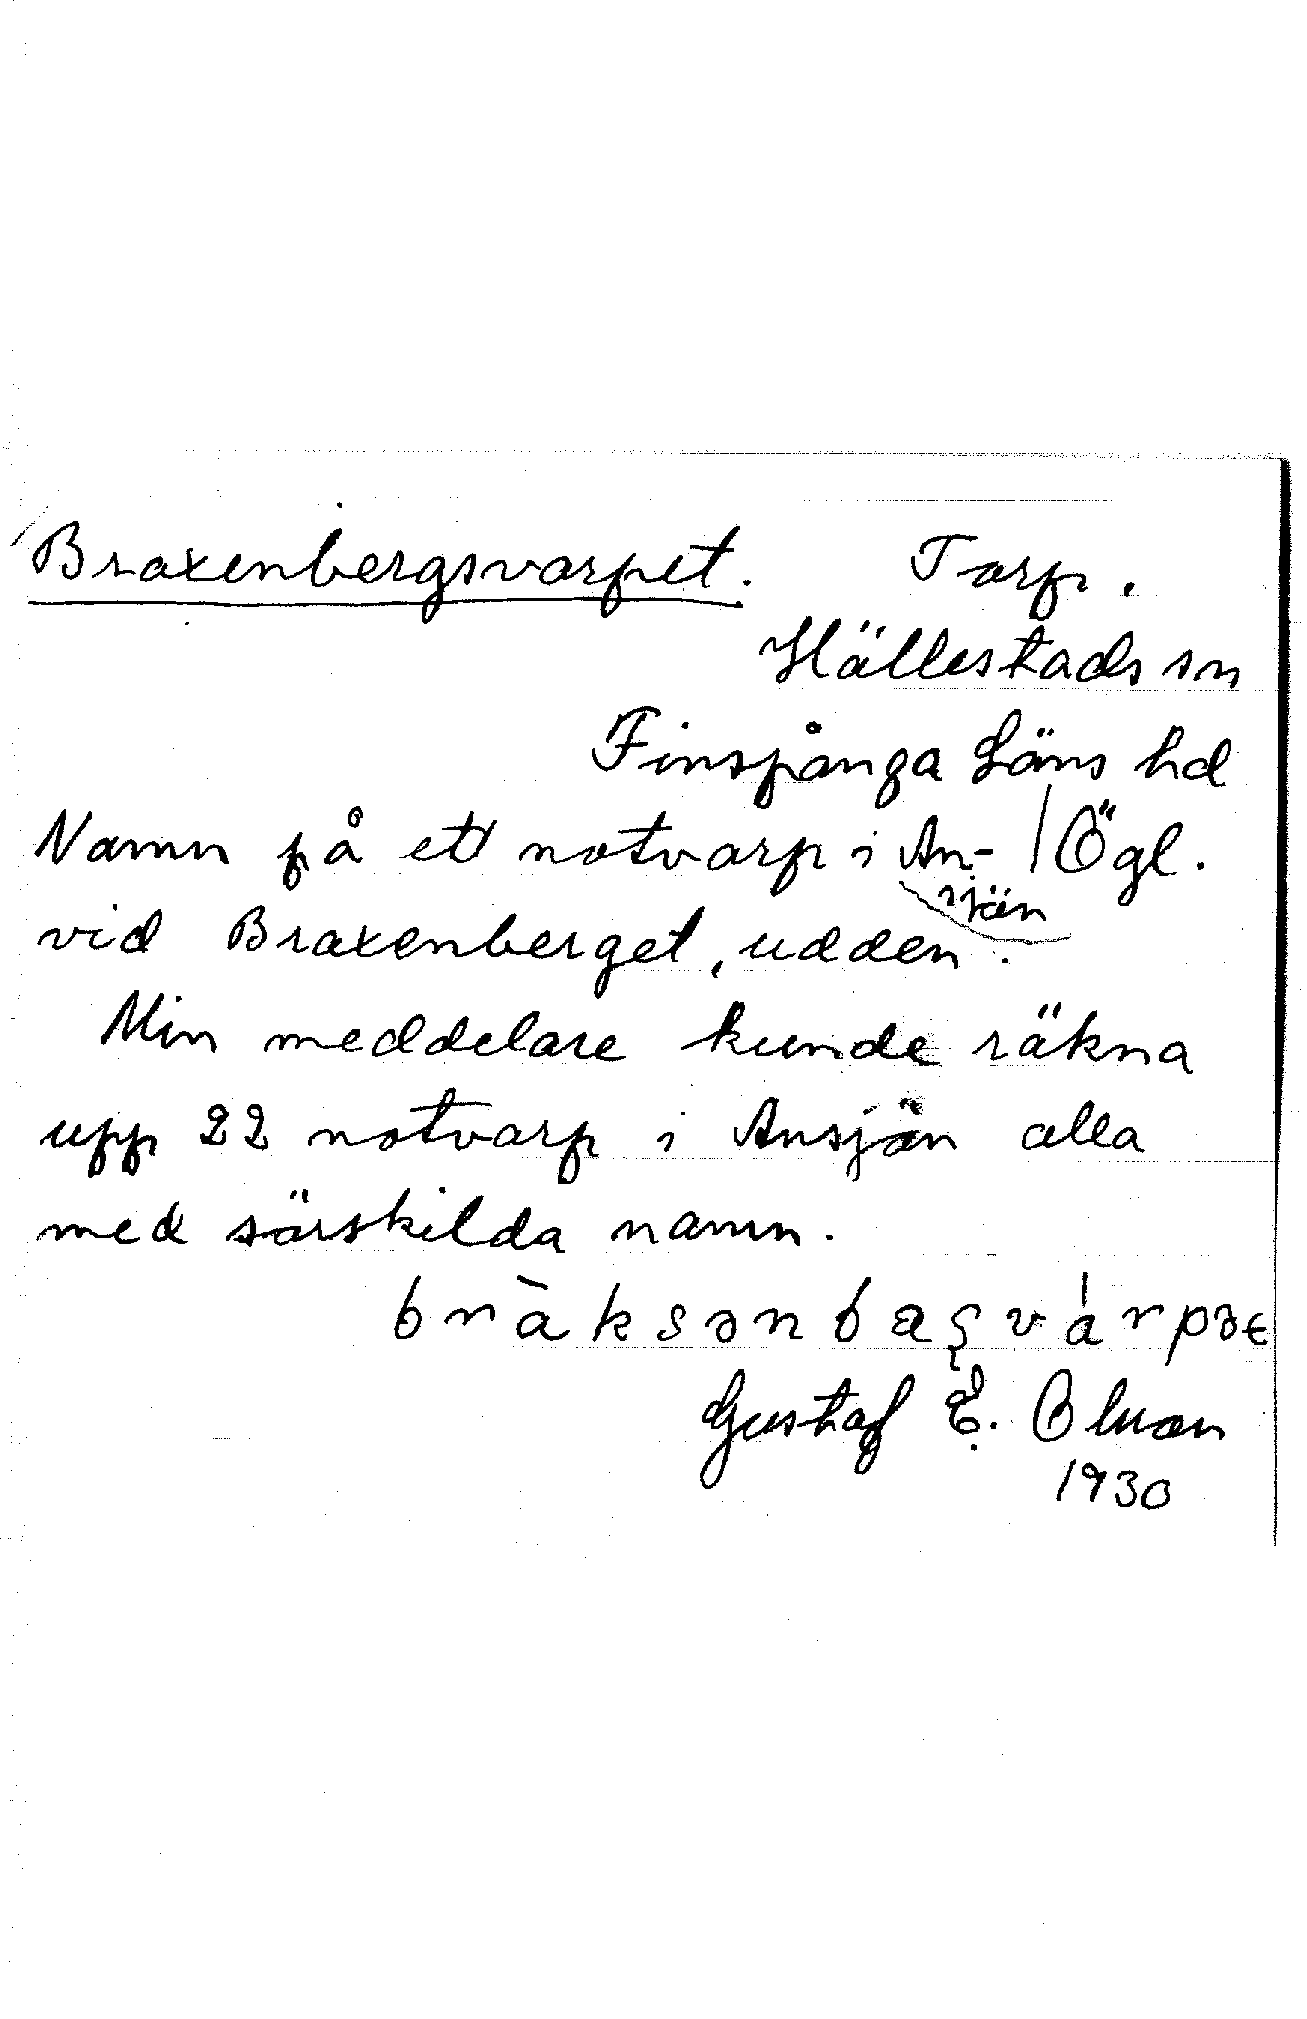 Braxenbergsvarpet. Torp.
Hällestads sn
Finspånga Läns hd
Namn på ett notvarp i An- | Ögl.
sjön
vid Braxenberget, udden.
Min meddelare kunde räkna
upp 22 notvarp i Ansjön alla
med särskilda namn.
Gustaf E.
1930